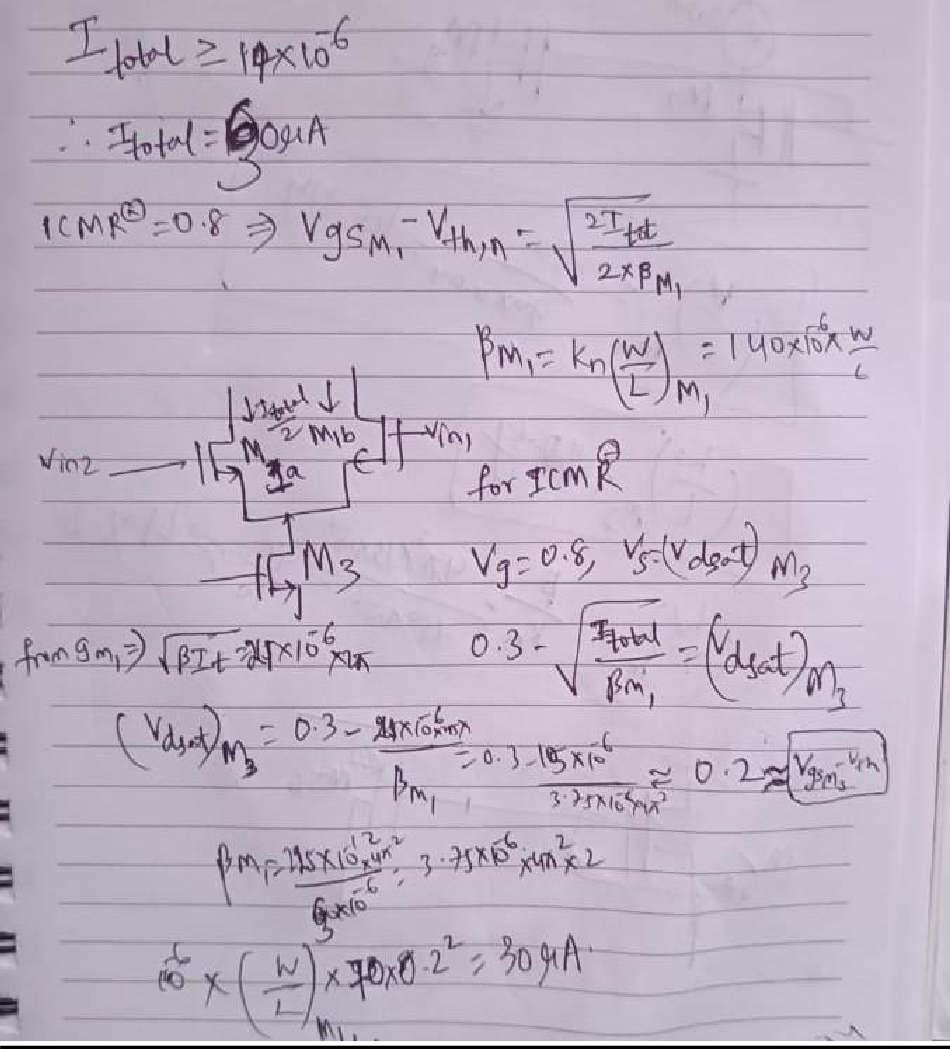 I total ≥ 14×10⁻⁶
∴ Itotal = 30μA
ICMR⊖ = 0.8 ⇒ VgsM₁ - Vth,n = √(2Itot / 2×βM₁)
βM₁ = Kn(W/L)M₁ = 140×10⁻⁶× W/L
↓ Itotal/2 ↓
Vin2 M1a M1b Vin1
for ICMR⊖
M3 Vg = 0.8, Vs = (Vdsat)M3
from gm₁ ⇒ √βIt = ×10⁻⁶×2π 0.3 - √(Itotal / βm₁) = (Vdsat)M3
(Vdsat)M3 = 0.3 - / βm₁ = 0.3 - 15×10⁻⁶ / 3.75×10⁻⁶×4π² ≈ 0.2 ≈ VgsM3-Vth
βM₁ = 225×10⁻¹²×4π² / 3×10⁻⁶ = 3.75×10⁻⁶×4π²×2
10⁻⁶ × (W/L) × 70×0.2² = 30μA